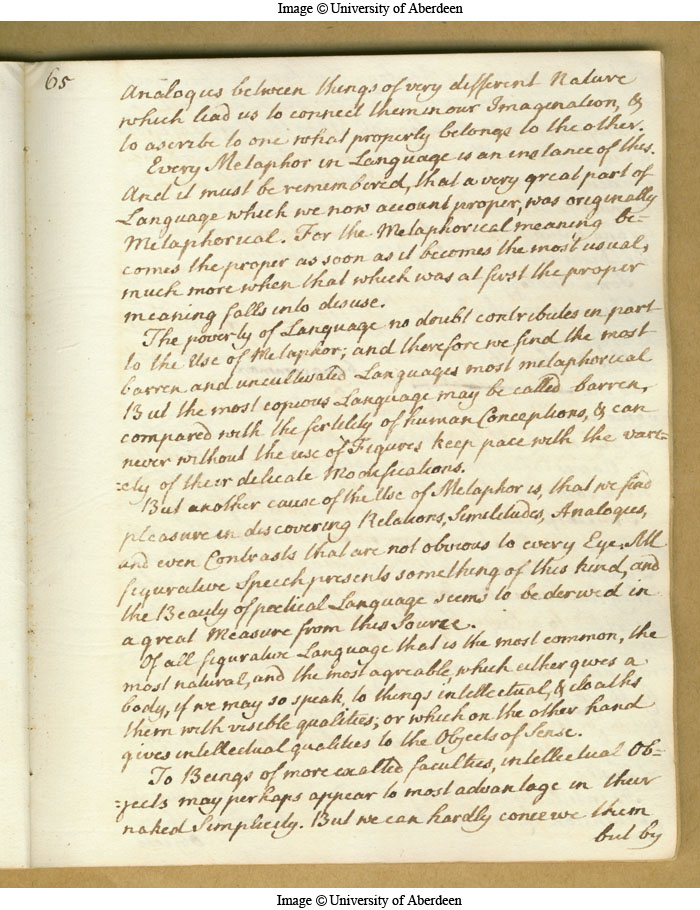 Image © University of Aberdeen
65
Analogies between things of very different Nature
which lead us to connect them in our Imagination, &
to ascribe to one what properly belongs to the other.
Every Metaphor in Language is an instance of this.
And it must be remembered, that a very great part of
Language which we now account proper, was originally
Metaphorical. For the Metaphorical meaning be=
comes the proper as soon as it becomes the most usual,
much more when that which was at first the proper
meaning falls into disuse.
The poverty of Language no doubt contributes in part
to the Use of Metaphor; and therefore we find the most
barren and uncultivated Languages most metaphorical
But the most copious Language may be called barren,
compared with the fertility of human Conceptions, & can
never without the use of Figures keep pace with the vari=
=ety of their delicate Modifications.
But another cause of the Use of Metaphor is, that we find
pleasure in discovering Relations, Similitudes, Analogies,
and even Contrasts that are not obvious to every Eye. All
figurative Speech presents something of this kind, and
the Beauty of poetical Language seems to be derived in
a great Measure from this Source.
Of all figurative Language that is the most common, the
most natural, and the most agreable, which either gives a
body, if we may so speak, to things intellectual, & cloaths
them with visible qualities; or which on the other hand
gives intellectual qualities to the Objects of Sense.
To Beings of more exalted faculties, intellectual Ob=
=jects may perhaps appear to most advantage in their
naked Simplicity. But we can hardly conceive them
but by
Image © University of Aberdeen